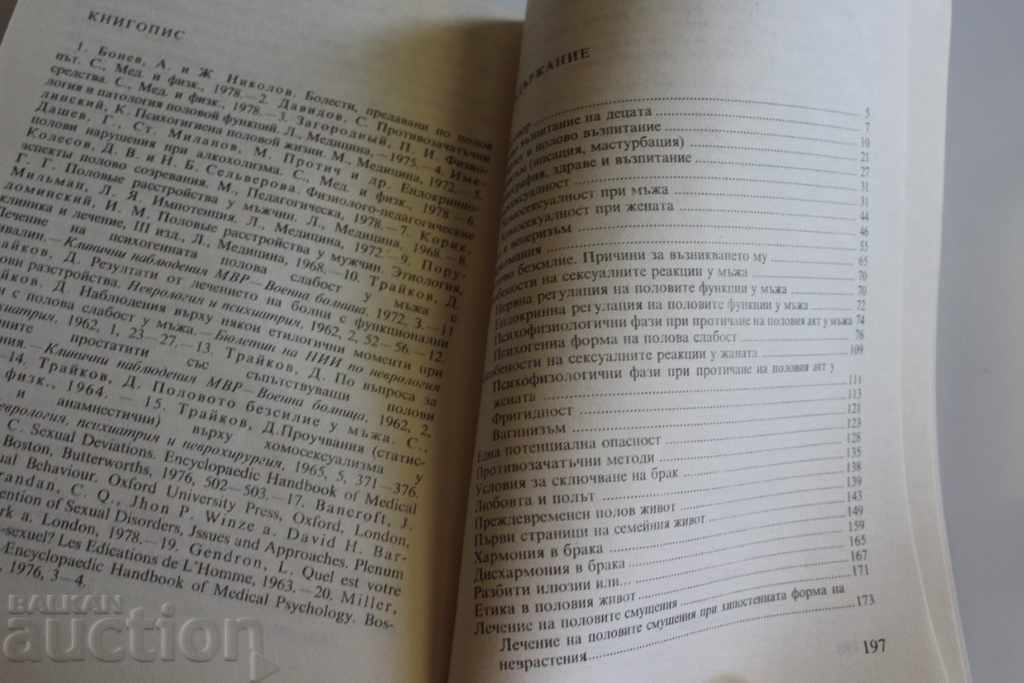 КНИГОПИС
1. Бонев, А. и Ж. Николов. Болести, предавани по полов
път. С., Мед. и физ., 1978.—2. Давидов, С. Противозачатъчни
средства. С., Мед. и физ., 1978.—3. Загородный, П. И. Физио-
логия и патология половой функций. Л., Медицина, 1975.—4. Име-
линский, К. Психогигиена половой жизни. М., Медицина, 1972.—5.
Дашев, Г., Ст. Миланов, М. Протич и др. Ендокринно-
полови нарушения при алкохолизма. С., Мед. и физ., 1978 —6.
Колесов, Д. В. и И. Б. Сельверова. Физиолого-педагогические
аспекты полово созревания. М., Педагогическа, 1978.—7. Корик,
Г. Г. Половые расстройства у мужчин. Л., Медицина, 1968.—8.
Мильман, Л. Я. Импотенция. Л., Медицина, 1972 —9. Пору-
доминский, И. М. Половые расстройства у мужчин. Этиология,
клиника и лечение, III изд., Л., Медицина, 1968.—10. Трайков, Д.
Лечение на психогенната полова слабост у мъжа с
.—Клинични наблюдения МВР—Военна болница, 1972, 3.—11
Д. Резултати от лечението на болни с функционални
разстройства. Неврология и психиатрия, 1962, 2, 52—56.—12.
Д. Наблюдения върху някои етилогични моменти при
с полова слабост у мъжа.—Бюлетин на НИИ по неврология
1962, 1, 23—27.—13. Трайков, Д. По въпроса за
простатити със съпътствуващи полови
.—Клинични наблюдения МВР—Военна болница, 1962, 2,
—14. Трайков, Д. Половото безсилие у мъжа. С.,
физ., 1964. — 15. Трайков, Д.Проучвания (статис-
и анамнестични) върху хомосексуализма у
неврология, психиатрия и неврохирургия, 1965, 5, 371—376.
C. Sexual Deviations. Encyclopaedic Handbook of Medical
Boston, Butterworths, 1976, 502—503.—17. Bancroft, J.
Behaviour. Oxford University Press, Oxford, London,
C. Q., Jhon P. Winze a. David H. Bar-
of Sexual Disorders, Jssues and Approaches. Plenum
a. London, 1978.—19. Gendron, L. Quel est votre
Les Edications de L'Homme, 1963.—20. Miller,
Encyclopaedic Handbook of Medical Psychology. Bos-
1976, 3—4.
ДЪРЖАНИЕ
5
възпитание на децата 7
в полово възпитание 10
(ипсация, мастурбация) 21
здраве и възпитание 27
31
при мъжа 31
при жената 44
и воайеризъм 46
55
безсилие. Причини за възникването му 65
на сексуалните реакции у мъжа 70
Нервна регулация на половите функции у мъжа 70
Ендокринна регулация на половите функции у мъжа 72
Психофизиологични фази при протичане на половия акт у мъжа 74
Психогенна форма на полова слабост 76
на сексуалните реакции у жената 109
Психофизиологични фази при протичане на половия акт у
жената 111
Фригидност 113
Вагинизъм 121
Една потенциална опасност 123
Противозачатъчни методи 128
Условия за сключване на брак 135
Любовта и полът 138
Преждевременен полов живот 139
Първи страници на семейния живот 143
Хармония в брака 149
Дисхармония в брака 159
Разбити илюзии или... 165
Етика в половия живот 167
Лечение на половите смущения 171
Лечение на половите смущения при хипостеничната форма на
неврастения 173
197
BALKAN
auction